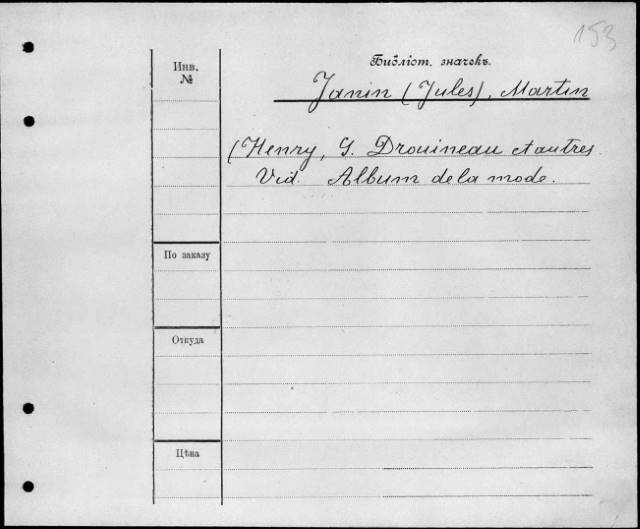 153
Библіот. значекъ.
Инв.
№
Janin (Jules), Martin
(Henry, G. Drouineau et autres.
Vid. Album de la mode.
По заказу
Откуда
Цѣна